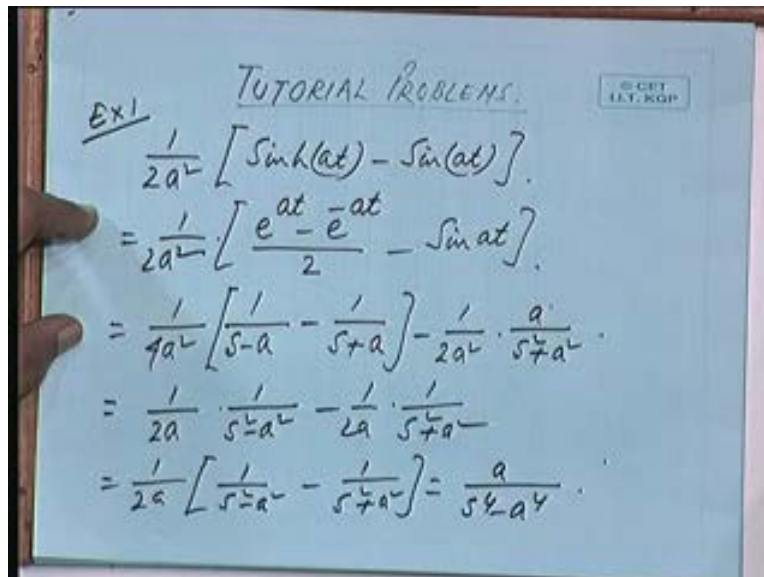 TUTORIAL PROBLEMS.
© CET
I.I.T. KGP
Ex1
1/2a² [Sinh(at) - Sin(at)].
= 1/2a² · [(e^at - e^-at)/2 - Sin at].
= 1/4a² [1/(s-a) - 1/(s+a)] - 1/2a² · a/(s²+a²) .
= 1/2a · 1/(s²-a²) - 1/2a · 1/(s²+a²)
= 1/2a [1/(s²-a²) - 1/(s²+a²)] = a/(s⁴-a⁴) .